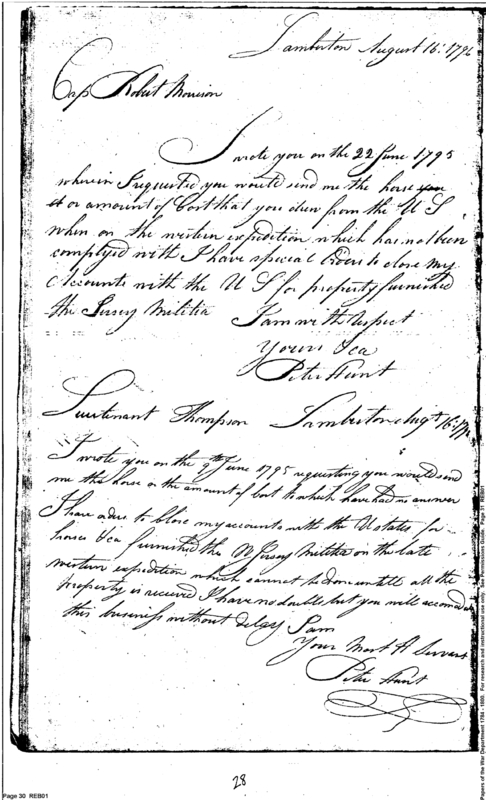 Lamberton August 16: 1796
Cap Robert Morrison
I wrote you on the 22 June 1795
wherein I requested you would send me the horse you
or amount of Cost that you drew from the U S
when on the western expedition which has not been
complyed with I have special Orders to close my
Accounts with the U S for property furnished
the Jersey Militia I am with respect
Yours &ca
Peter Hunt
Lieutenant Thompson Lamberton Augt 16: 1796
I wrote you on the 9th June 1795 requesting you would send
me the horse or the amount of Cost to which have had no answer
I have to Close my accounts with the U states for
horses &ca furnished the N Jersey Militia on the late
western expedition which cannot be done untill all the
property is received I have no doubt but you will
this business without delay I am
Your Most H Servant
Peter Hunt
28
Page 30 REB01
Papers of the War Department 1784 - 1800. For research and instructional use only. See Permissions Guide. Page 31 REB01